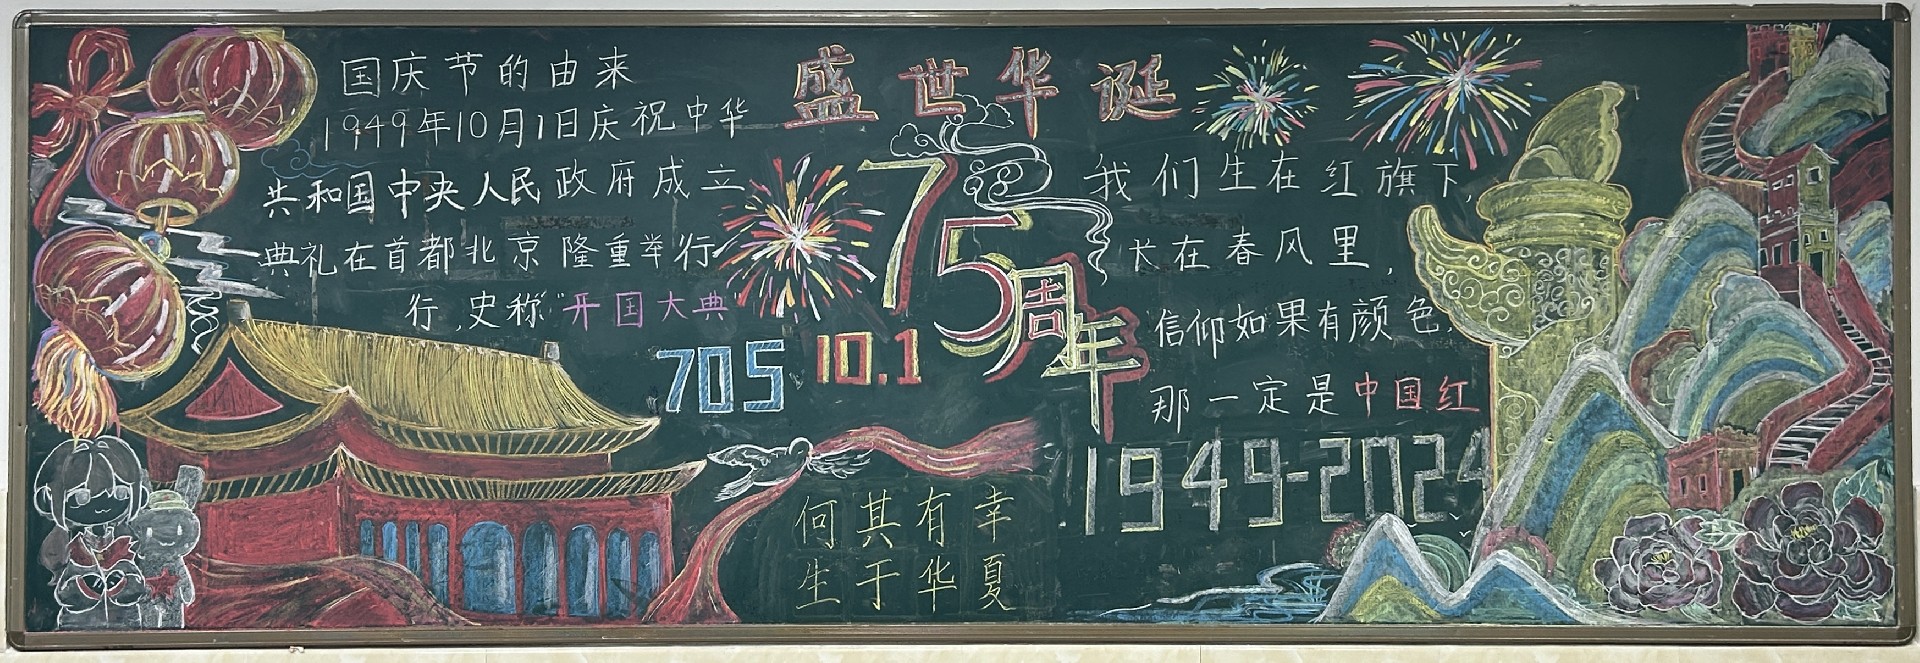 国庆节的由来
1949年10月1日庆祝中华
共和国中央人民政府成立
典礼在首都北京隆重举行
行,史称"开国大典"
盛世华诞
75周年
705
10.1
我们生在红旗下,
长在春风里,
信仰如果有颜色,
那一定是中国红
1949-2024
何其有幸
生于华夏